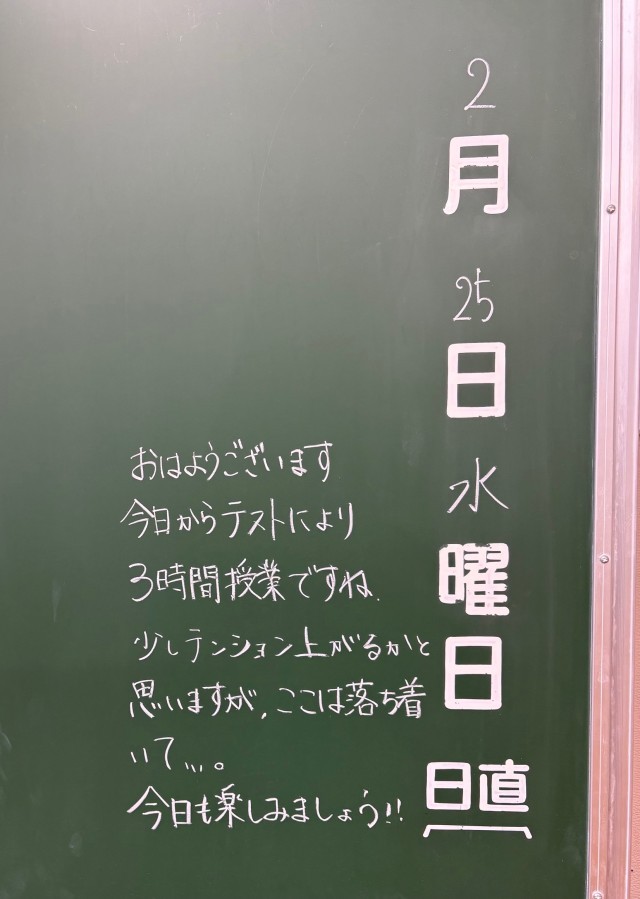 2月25日水曜日
日直
おはようございます
今日からテストにより
3時間授業ですね.
少しテンション上がるかと
思いますが, ここは落ち着
いて,,,。
今日も楽しみましょう!!